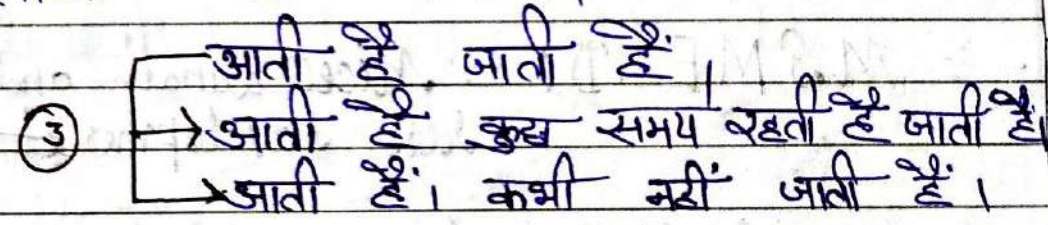 आती है जाती हैं।
③ → आती है कुछ समय रहती है जाती है।
→ आती हैं। कभी नहीं जाती हैं।